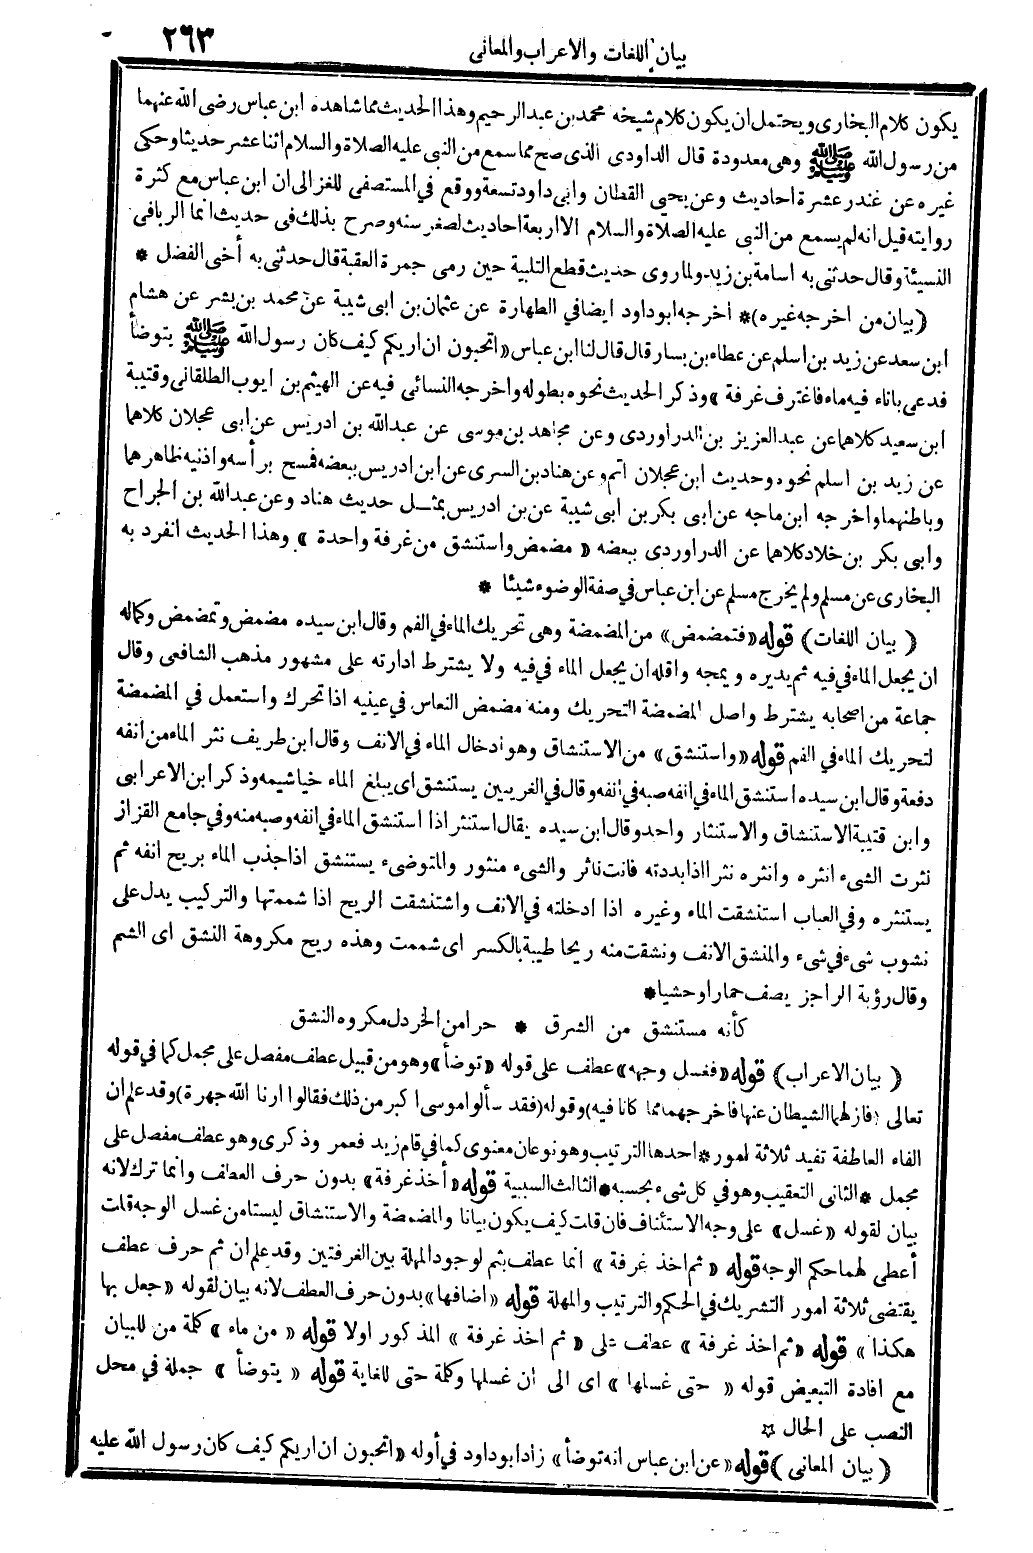 بيان اللغات والاعراب والمعانى ٢٦٣
يكون كلام البخارى ويحتمل ان يكون كلام شيخه محمد بن عبد الرحيم وهذا الحديث مما شاهده ابن عباس رضى الله عنهما
من رسول الله ﷺ وهى معدودة قال الداودى الذى صح مما سمع من النبى عليه الصلاة والسلام اثنا عشر حديثا وحكى
غيره عن غندر عشرة احاديث وعن يحيى القطان وابى داود تسعة ووقع في المستصفى للغزالى ان ابن عباس مع كثرة
روايته قيل انه لم يسمع من النبى عليه الصلاة والسلام الا اربعة احاديث لصغر سنه وصرح بذلك فى حديث انما الربا فى
النسيئة وقال حدثنى به اسامة بن زيد ولما روى حديث قطع التلبية حين رمى جمرة العقبة قال حدثنى به أخى الفضل *
( بيان من اخرجه غيره )* أخرجه ابو داود ايضا في الطهارة عن عثمان بن ابى شيبة عن محمد بن بشر عن هشام
ابن سعد عن زيد بن اسلم عن عطاء بن يسار قال قال لنا ابن عباس «اتحبون ان اريكم كيف كان رسول الله ﷺ يتوضأ
فدعى باناء فيه ماء فاغترف غرفة» وذكر الحديث نحوه بطوله واخرجه النسائى فيه عن الهيثم بن ايوب الطلقانى وقتيبة
ابن سعيد كلاهما عن عبد العزيز بن الدراوردى وعن مجاهد بن موسى عن عبد الله بن ادريس عن ابى عجلان كلاهما
عن زيد بن اسلم نحوه وحديث ابن عجلان اتم وعن هناد بن السرى عن ابن ادريس ببعضه فمسح برأسه واذنيه ظاهرهما
وباطنهما واخرجه ابن ماجه عن ابى بكر بن ابى شيبة عن بن ادريس بمثل حديث هناد وعن عبد الله بن الجراح
وابى بكر بن خلاد كلاهما عن الدراوردى ببعضه « مضمض واستنشق من غرفة واحدة » وهذا الحديث انفرد به
البخارى عن مسلم ولم يخرج مسلم عن ابن عباس في صفة الوضوء شيئا *
( بيان اللغات ) قوله «فتمضمض» من المضمضة وهى تحريك الماء في الفم وقال ابن سيده مضمض وتمضمض وكماله
ان يجعل الماء في فيه ثم يديره ويمجه واقله ان يجعل الماء في فيه ولا يشترط ادارته على مشهور مذهب الشافعى وقال
جماعة من اصحابه يشترط واصل المضمضة التحريك ومنه مضمض النعاس في عينيه اذا تحرك واستعمل في المضمضة
لتحريك الماء في الفم قوله «واستنشق» من الاستنشاق وهو ادخال الماء في الانف وقال ابن طريف نثر الماء من أنفه
دفعة وقال ابن سيده استنشق الماء في انفه صبه في انفه وقال في الغريبين يستنشق اى يبلغ الماء خياشيمه وذكر ابن الاعرابى
وابن قتيبة الاستنشاق والاستنثار واحد وقال ابن سيده يقال استنثر اذا استنشق الماء في انفه وصبه منه وفي جامع القزاز
نثرت الشىء انثره وانثره نثرا اذا بددته فانت ناثر والشىء منثور والمتوضىء يستنشق اذا جذب الماء بريح انفه ثم
يستنثره وفي العباب استنشقت الماء وغيره اذا ادخلته في الانف واشتنشقت الريح اذا شممتها والتركيب يدل على
نشوب شىء في شىء والمنشق الانف ونشقت منه ريحا طيبة بالكسر اى شممت وهذه ريح مكروهة النشق اى الشم
وقال رؤبة الراجز يصف حمارا وحشيا*
كأنه مستنشق من الشرق * حرا من الخردل مكروه النشق
( بيان الاعراب ) قوله «فغسل وجهه» عطف على قوله «توضأ» وهو من قبيل عطف مفصل على مجمل كما في قوله
تعالى (فازلهما الشيطان عنها فاخرجهما مما كانا فيه) وقوله (فقد سألوا موسى اكبر من ذلك فقالوا ارنا الله جهرة) وقد علم ان
الفاء العاطفة تفيد ثلاثة امور* احدها الترتيب وهو نوعان معنوى كما في قام زيد فعمر وذكرى وهو عطف مفصل على
مجمل * الثانى التعقيب وهو في كل شىء بحسبه* الثالث السببية قوله «أخذ غرفة» بدون حرف العطف وانما ترك لانه
بيان لقوله «غسل» على وجه الاستئناف فان قلت كيف يكون بيانا والمضمضة والاستنشاق ليستا من غسل الوجه قلت
أعطى لهما حكم الوجه قوله « ثم اخذ غرفة » انما عطف بثم لوجود المهلة بين الغرفتين وقد علم ان ثم حرف عطف
يقتضى ثلاثة امور التشريك في الحكم والترتيب والمهلة قوله « اضافها » بدون حرف العطف لانه بيان لقوله « جعل بها
هكذا » قوله « ثم اخذ غرفة » عطف على « ثم اخذ غرفة » المذكور اولا قوله « من ماء » كلمة من للبيان
مع افادة التبعيض قوله « حتى غسلها » اى الى ان غسلها وكلمة حتى للغاية قوله « يتوضأ » جملة في محل
النصب على الحال ☆
( بيان المعانى ) قوله «عن ابن عباس انه توضأ» زاد ابو داود في أوله «اتحبون ان اريكم كيف كان رسول الله عليه